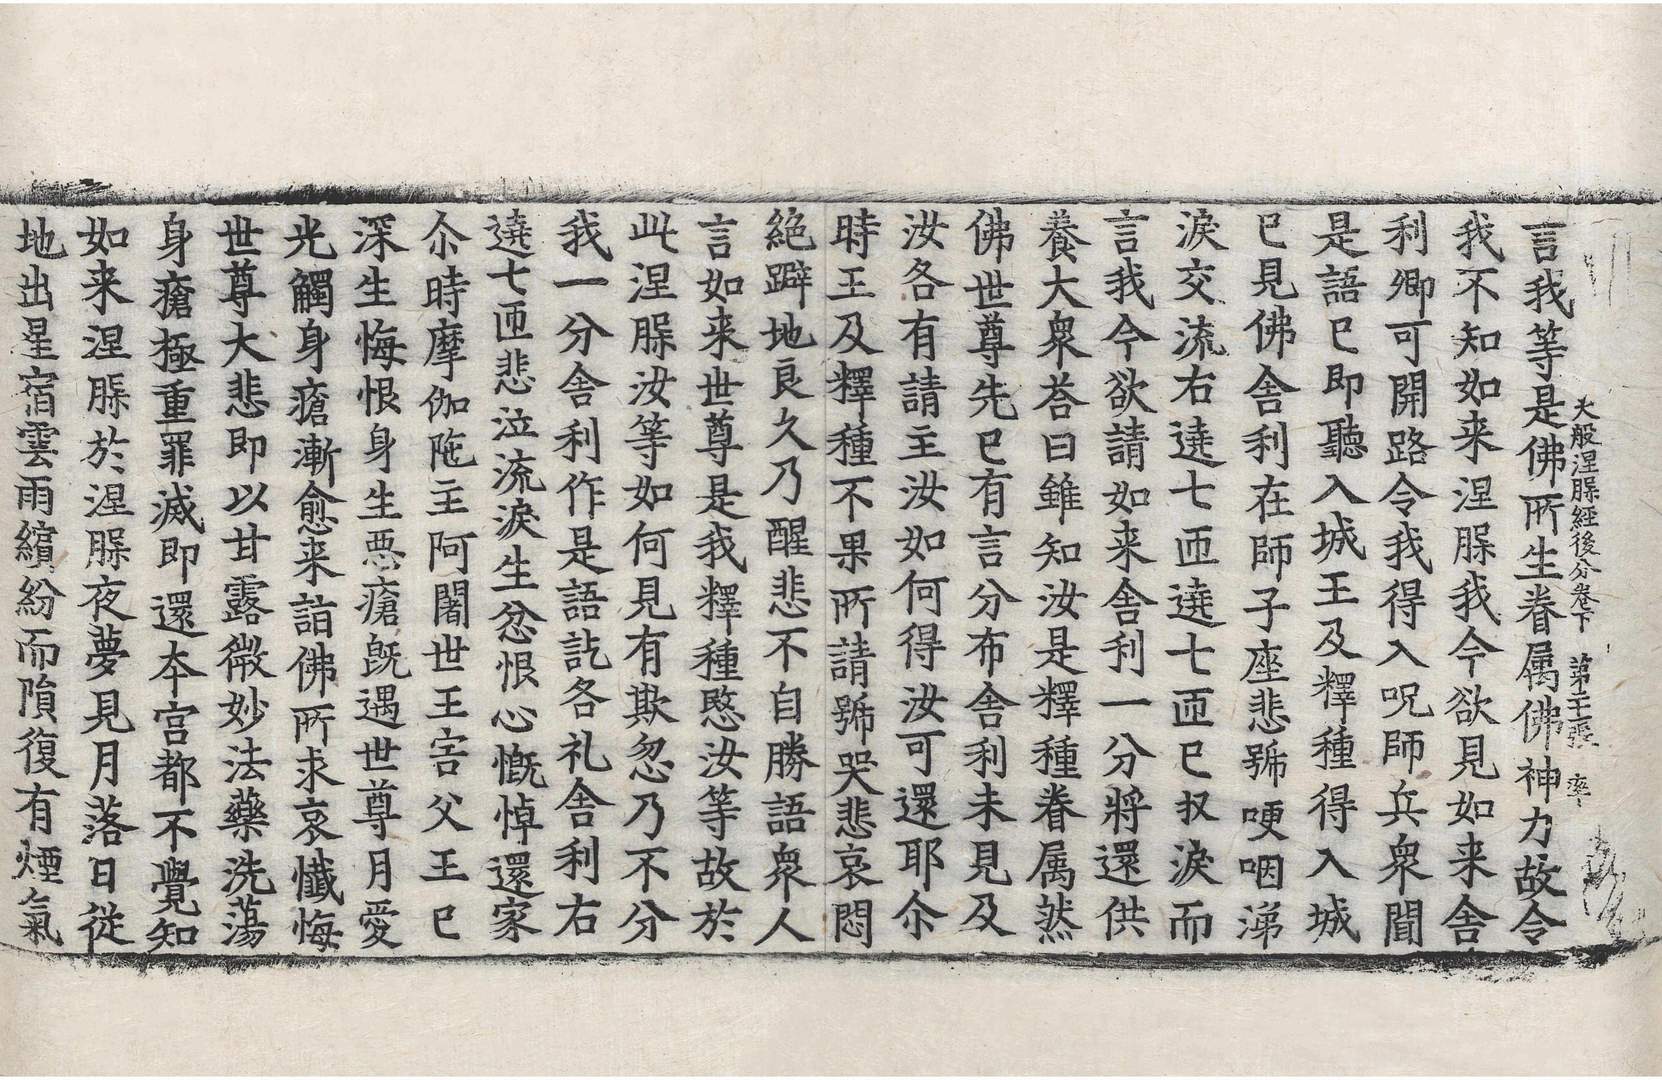 大般涅槃經後分卷下 第張 率
言我等是佛所生眷属佛神力故令
我不知如来涅槃我今欲見如来舎
利卿可開路令我得入呪師兵衆聞
是語已即聽入城王及釋種得入城
已見佛舎利在師子座悲號哽咽涕
淚交流右遶七匝遶七匝已収淚而
言我今欲請如来舎利一分將還供
養大衆荅曰雖知汝是釋種眷属然
佛世尊先已有言分布舎利未見及
汝各有請主汝如何得汝可還耶尒
時王及釋種不果所請號哭悲哀悶
絶躃地良久乃醒悲不自勝語衆人
言如来世尊是我釋種愍汝等故於
此涅槃汝等如何見有欺忽乃不分
我一分舎利作是語訖各礼舎利右
遶七匝悲泣流淚生忿恨心慨悼還家
尒時摩伽陁主阿闍世王害父王已
深生悔恨身生惡瘡既遇世尊月愛
光觸身瘡漸愈来詣佛所求哀懺悔
世尊大悲即以甘露微妙法藥洗蕩
身瘡極重罪滅即還夲宮都不覺知
如来涅槃於涅槃夜夢見月落日従
地出星宿雲雨繽紛而隕復有煙氣